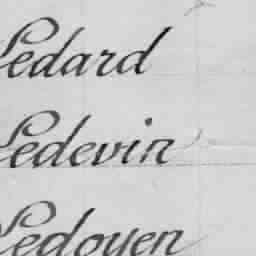 Ledard
Ledevin
Ledoyen